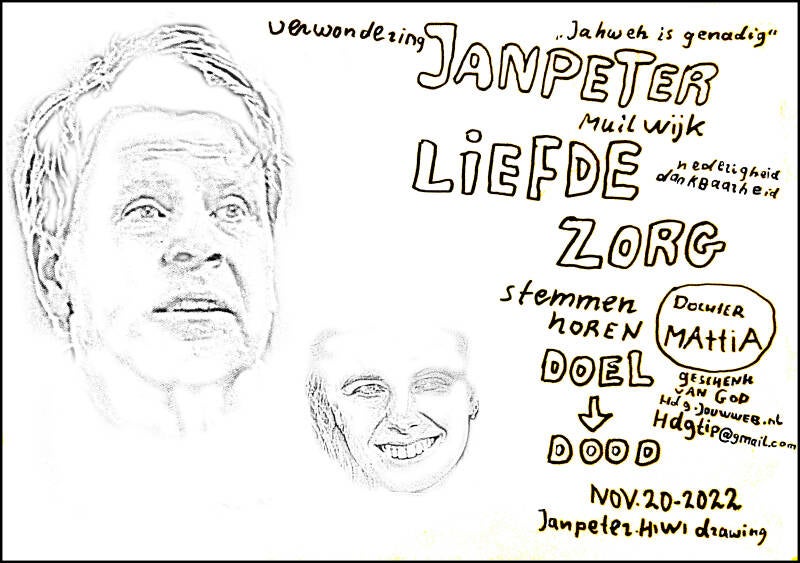 verwondering
„Jahweh is genadig“
JANPETER
Muilwijk
LiEFDE
nederigheid
dankBaarheid
ZORG
stemmen
HOREN
DOCHTER
MAttiA
DOEL
GESCHENK
VAN GOD
Hdg.JOUWWEB.nl
Hdgtip@gmail.com
DOOD
NOV.20-2022
Janpeter.HiWi drawing